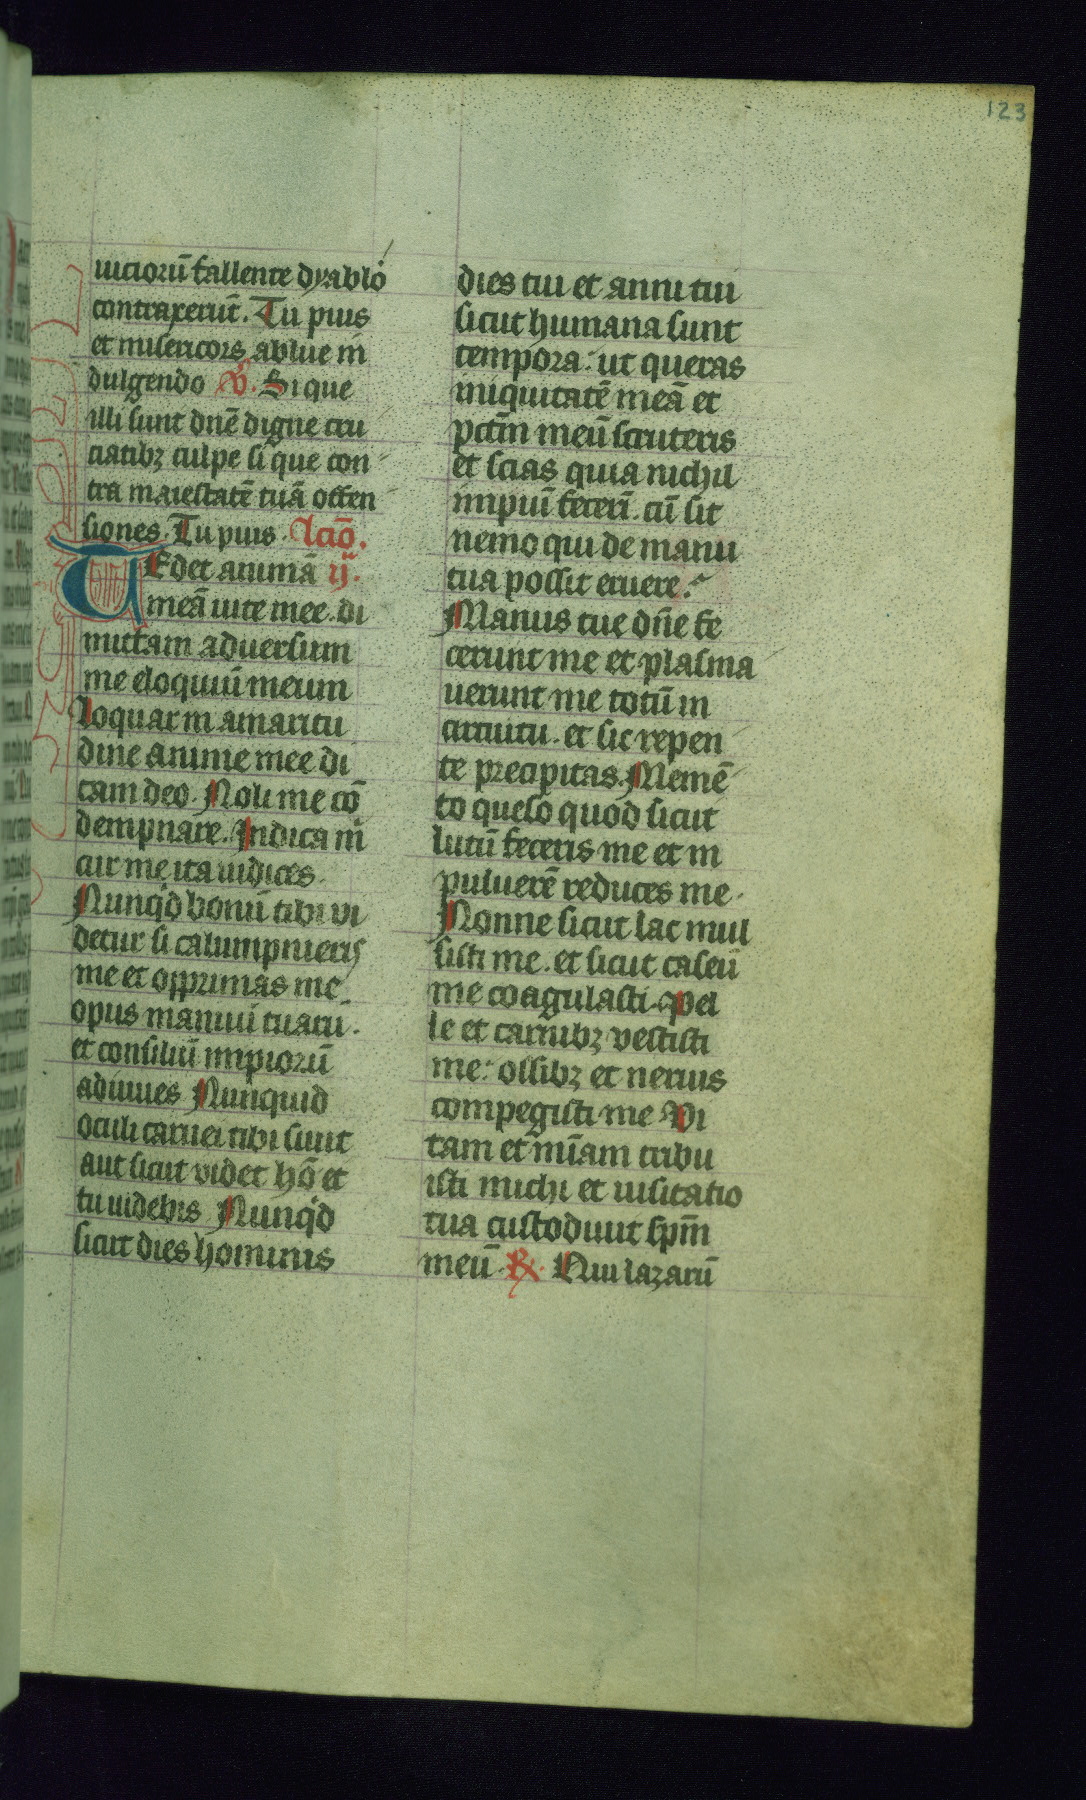 123
uiciorū fallente dyablo
contraxerūt. Tu pius
et misericors ablue in
dulgendo V̄. Si que
illi sunt dn̄e digne cru
ciatibꝫ culpe si que con
tra maiestatē tuā offen
siones. Tu pius. Lcīō.
TEdet animā ij.
meā uite mee. di
mittam aduersum
me eloquiū meum
loquar in amaritu
dine anime mee di
cam deo. Noli me cō
dempnare. Indica m̄
cur me ita iudices.
Nunqd bonū tibi vi
detur si calumpnieris
me et opprimas me.
opus manuū tuarū.
et consiliū impiorū
adiuues Nunquid
oculi carnei tibi sunt
aut sicut videt hō et
tu uidebis Nunqd
sicut dies hominis
dies tui et anni tui
sicut humana sunt
tempora: ut queras
iniquitatē meā et
pctm̄ meū scruteris
et scias quia nichil
impiū fecerī. cū sit
nemo qui de manu
tua possit eruere.
Manus tue dn̄e fe
cerunt me et plasma
uerunt me totū in
circuitu. et sic repen
te precipitas. Memē
to queso quod sicut
lutū feceris me et in
puluerē reduces me.
Nonne sicut lac mul
sisti me. et sicut caseū
me coagulasti. Pel
le et carnibꝫ vestisti
me: ossibꝫ et neruis
compegisti me Vi
tam et mīam tribu
isti michi et uisitatio
tua custodiuit spm̄
meū. ℟. Qui lazarū